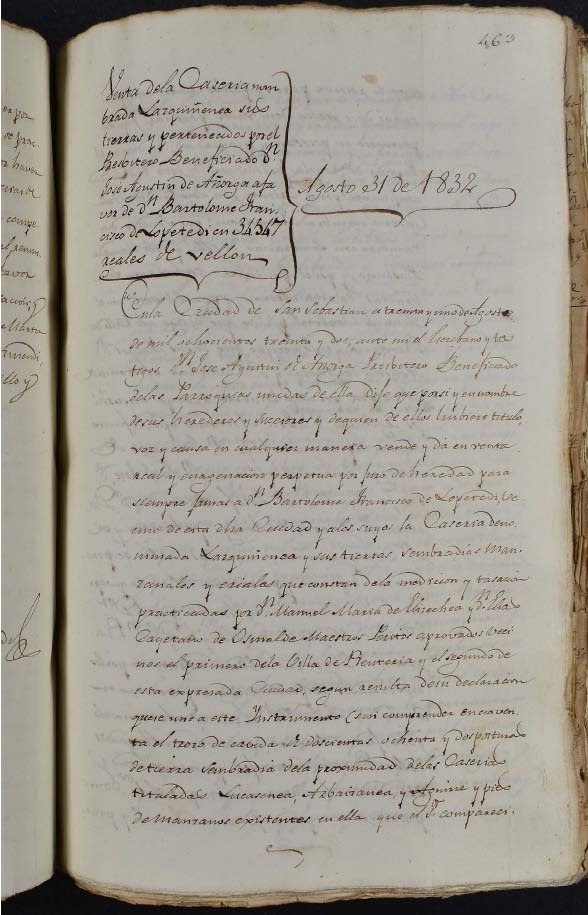 463
Venta dela Caseria nom
brada Larquiñenea sus
tierras y pertenecidos por el
Presbitero Beneficiado Dⁿ
Jose Agustin de Añorga afa
vor de dⁿ Bartolome Fran
cisco de Lopetedi en 34347
reales de vellon
Agosto 31 de 1832
Enla Ciudad de San Sebastian a treinta y uno de Agosto
de mil ochocientos treinta y dos, ante mi el Escribano y tes
tigos Dⁿ Jose Agustin de Añorga Presbitero Beneficiado
delas Parroquias unidas de ella Dijo, que por si y en nombre
de sus herederos y succesores y de quien de ellos hubiere titulo,
voz y causa en cualquier manera vende y dá en venta
real y enagenacion perpetua por juro de heredad para
siempre jamas a dⁿ Bartolome Francisco de Lopetedi, ve
cino de esta dha Ciudad y alos suyos la Caseria deno
minada Larquiñenea y sus tierras sembradias Man
zanales y eriales que constan dela medicion y tasacion
practicadas por Dⁿ Manuel Maria de y Dⁿ Eladio
Cayetano de Osinalde Maestros Peritos aprovados veci
nos el primero dela Villa de Renteria y el segundo de
esta expresada Ciudad, segun resulta de su declaracion
que se une a este Instrumento (sin comprender en esa ven
ta el trozo de cavida de doscientas ochenta y dos posturas
de tierra sembradia dela proximidad delas Caserias
tituladas Lucasenea, y Aguirre y pies
de Manzanos existentes en ella que el Sᵒʳ compareci.